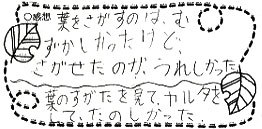 ○感想
葉をさがすのは、む
ずかしかったけど、
さがせたのが、うれしかった。
葉のすがたを見て、カルタを
して、たのしかった。